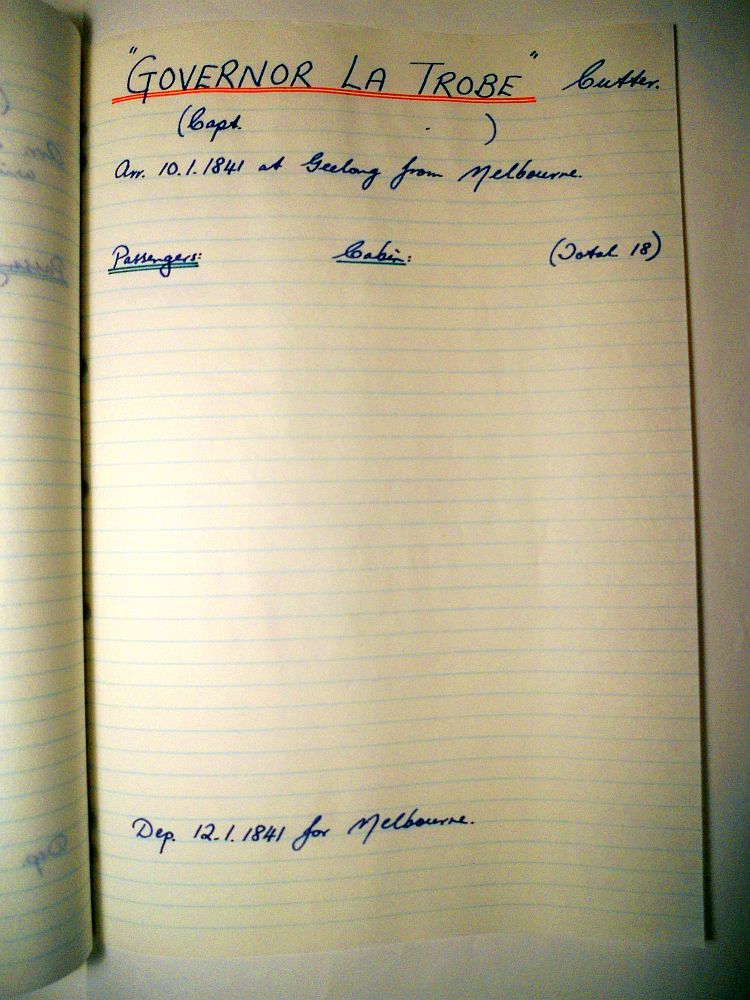 "GOVERNOR LA TROBE" Cutter.
(Capt. )
Arr. 10.1.1841 at Geelong from Melbourne.
Passengers: Cabin: (Total 18)
Dep. 12.1.1841 for Melbourne.